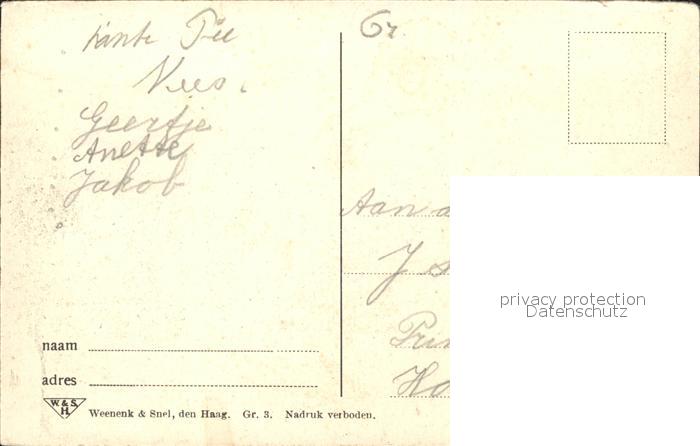 tante Pie
Nies.
Geertje
Anette
Jakob
Gr
Aan
J
naam
adres
W. & S.
H
Weenenk & Snel, den Haag. Gr. 3. Nadruk verboden.
privacy protection
Datenschutz